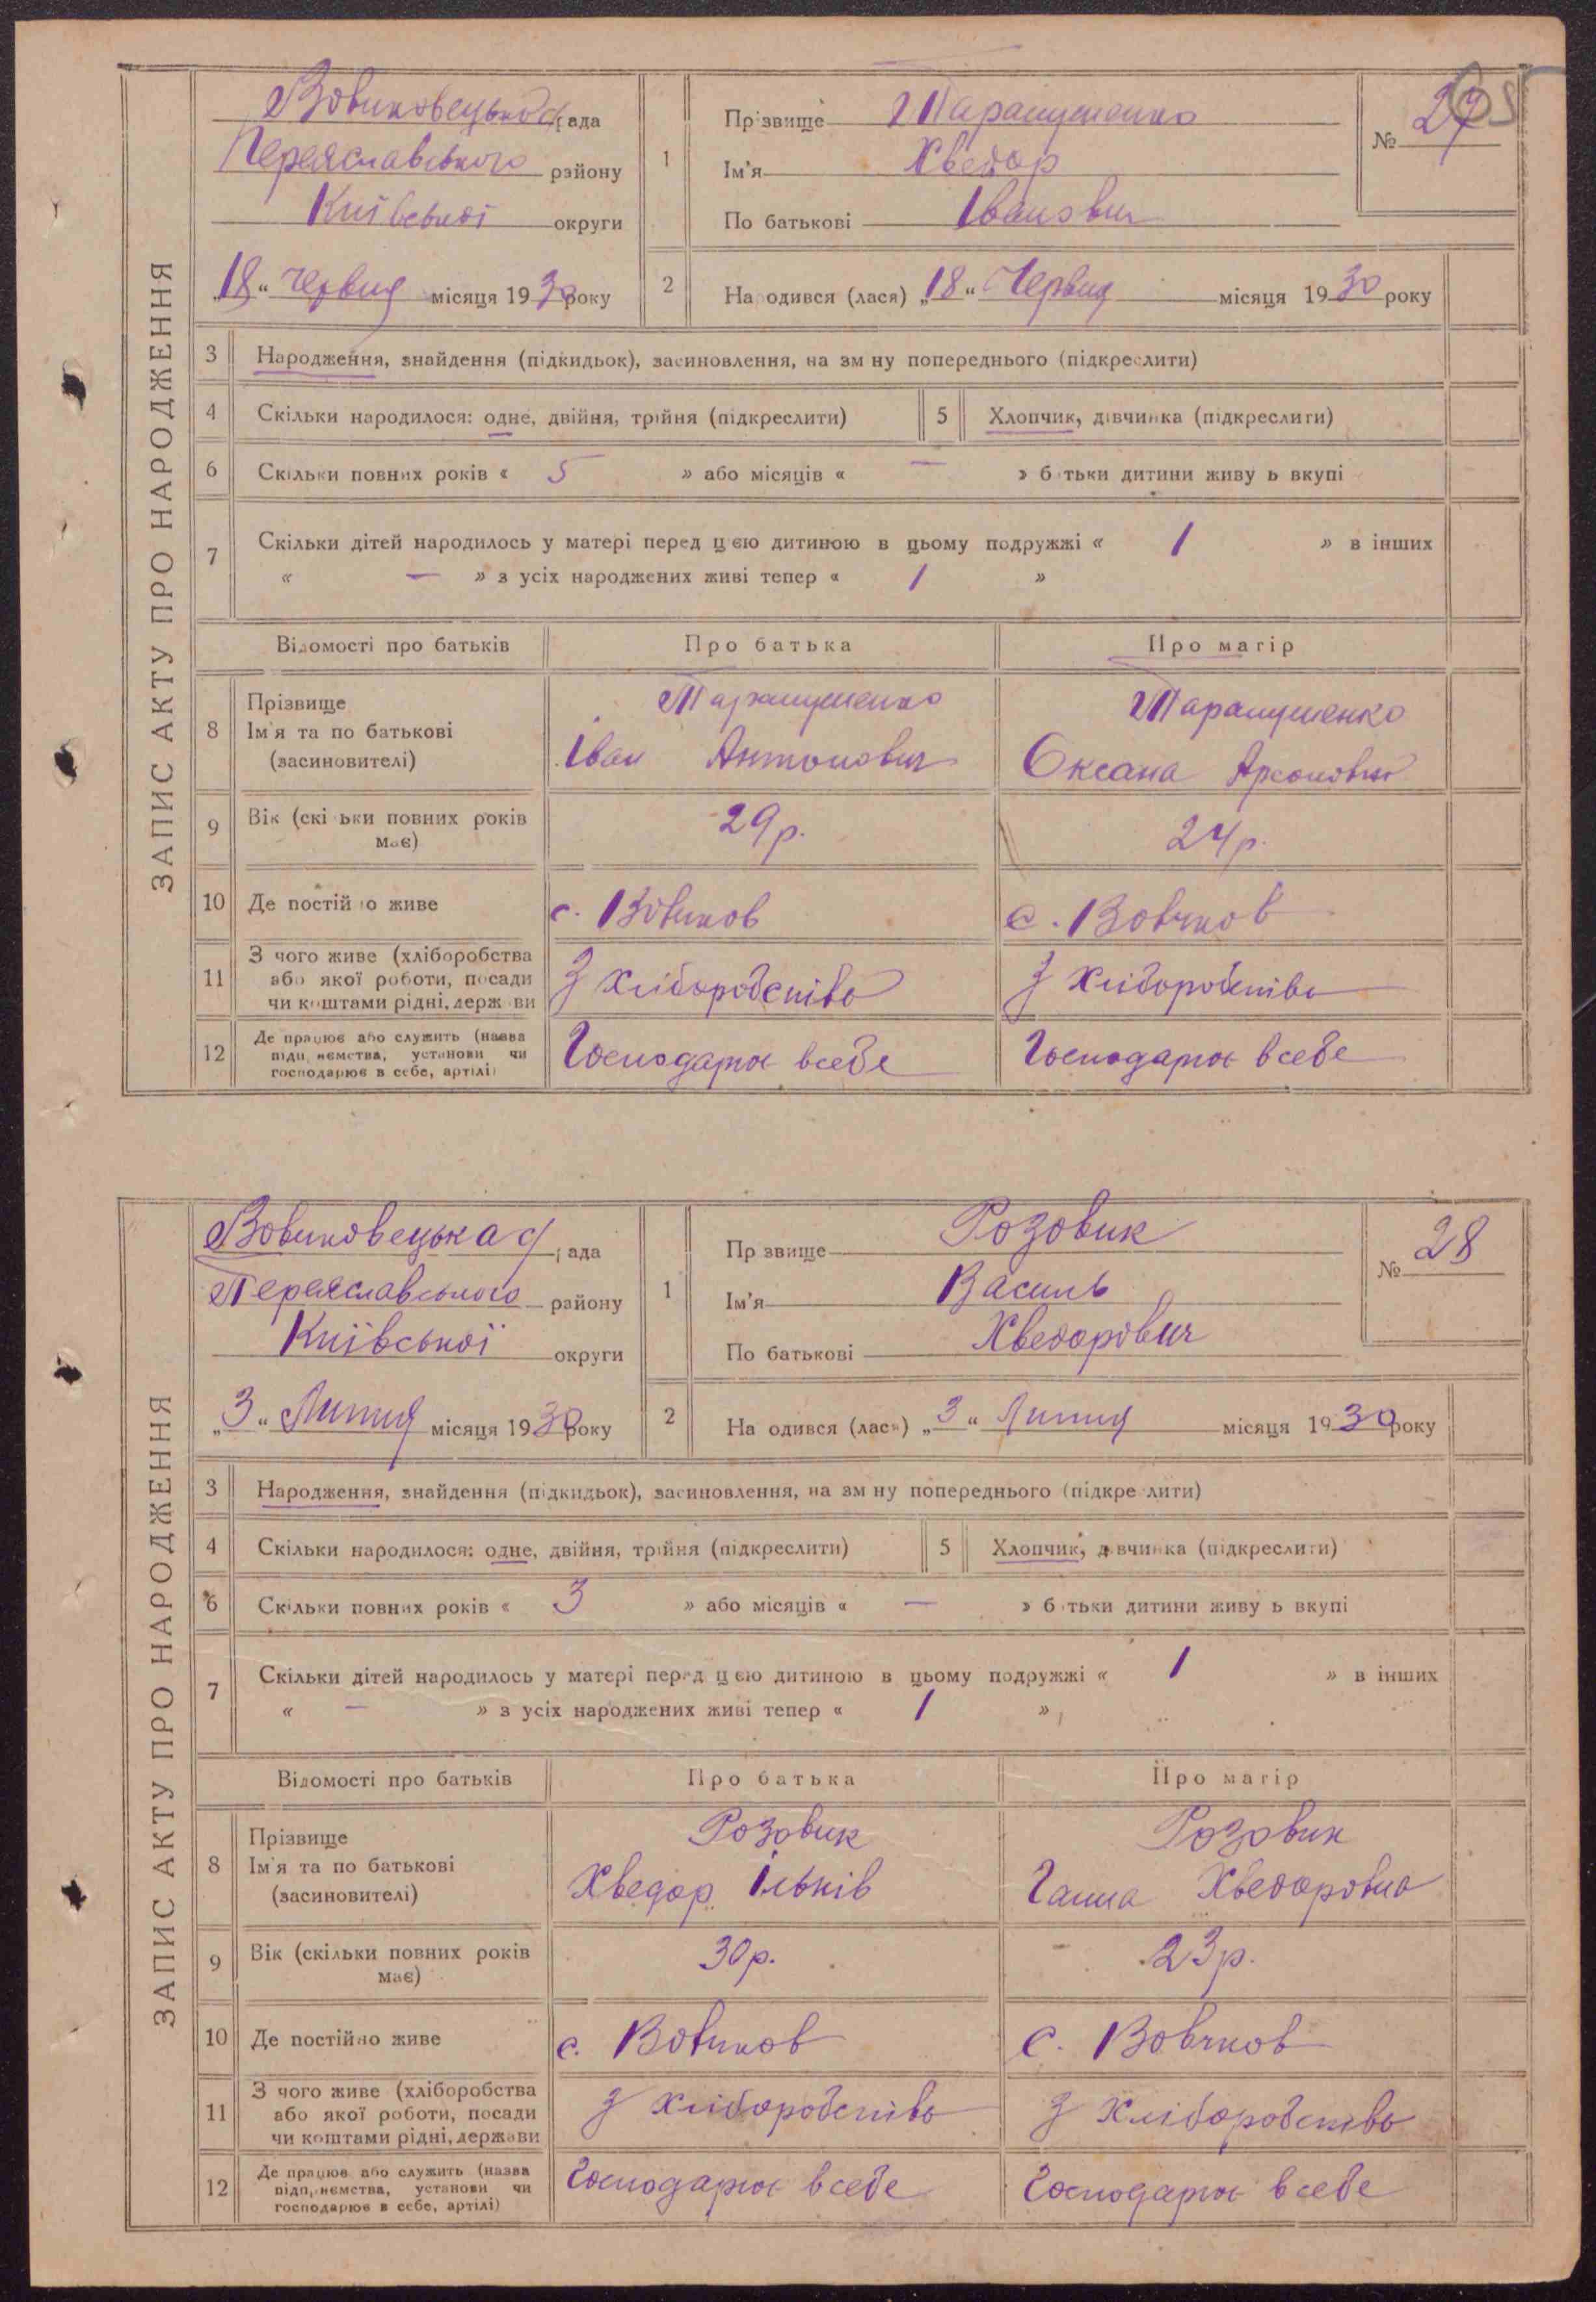 ЗАПИС АКТУ ПРО НАРОДЖЕННЯ
Вовчковецька с/рада
Переяславського району
Київської округи
„18“ Червня місяця 1930 року
1
Прізвище Тарапушенко
Ім'я Хведор
По батькові Іванович
№ 27
2
Народився (лася) „18“ Червня місяця 1930 року
3 Народження, знайдення (підкидьок), засиновлення, на зм ну попереднього (підкреслити)
4 Скільки народилося: одне, двійня, трійня (підкреслити)
5 Хлопчик, дівчинка (підкреслити)
6 Скільки повних років « 5 » або місяців « — » б тьки дитини живу ь вкупі
7 Скільки дітей народилось у матері перед цією дитиною в цьому подружжі « 1 » в інших
« — » з усіх народжених живі тепер « 1 »
Відомості про батьків Про батька Про матір
8 Прізвище
Ім'я та по батькові
(засиновителі)
Тарапушенко
Іван Антонович
Тарапушенко
Оксана
9 Вік (скі ьки повних років має)
29 р.
24 р.
10 Де постій о живе
с. Вовчков
с. Вовчков
11 З чого живе (хліборобства
або якої роботи, посади
чи коштами рідні, держ ви
З хліборобство
З хліборобство
12 Де працює або служить (назва
підп ємства, установи чи
господарює в себе, артілі)
Господарює в себе
Господарює в себе
ЗАПИС АКТУ ПРО НАРОДЖЕННЯ
Вовчковецька с/рада
Переяславського району
Київської округи
„3“ Липня місяця 1930 року
1
Пр звище Розовик
Ім'я Василь
По батькові Хведорович
№ 28
2
На одився (лася) „3“ Липня місяця 1930 року
3 Народження, знайдення (підкидьок), засиновлення, на зм ну попереднього (підкре лити)
4 Скільки народилося: одне, двійня, трійня (підкреслити)
5 Хлопчик, дівчинка (підкреслити)
6 Скільки повних років « 3 » або місяців « — » б тьки дитини живу ь вкупі
7 Скільки дітей народилось у матері перед цією дитиною в цьому подружжі « 1 » в інших
« — » з усіх народжених живі тепер « 1 »
Відомості про батьків Про батька Про матір
8 Прізвище
Ім'я та по батькові
(засиновителі)
Розовик
Хведор Ільків
Розовик
Ганна Хведоровна
9 Вік (скільки повних років має)
30 р.
23 р.
10 Де постійно живе
с. Вовчков
с. Вовчков
11 З чого живе (хліборобства
або якої роботи, посади
чи коштами рідні, держави
З хліборобство
З хліборобство
12 Де працює або служить (назва
підп ємства, установи чи
господарює в себе, артілі)
Господарює в себе
Господарює в себе